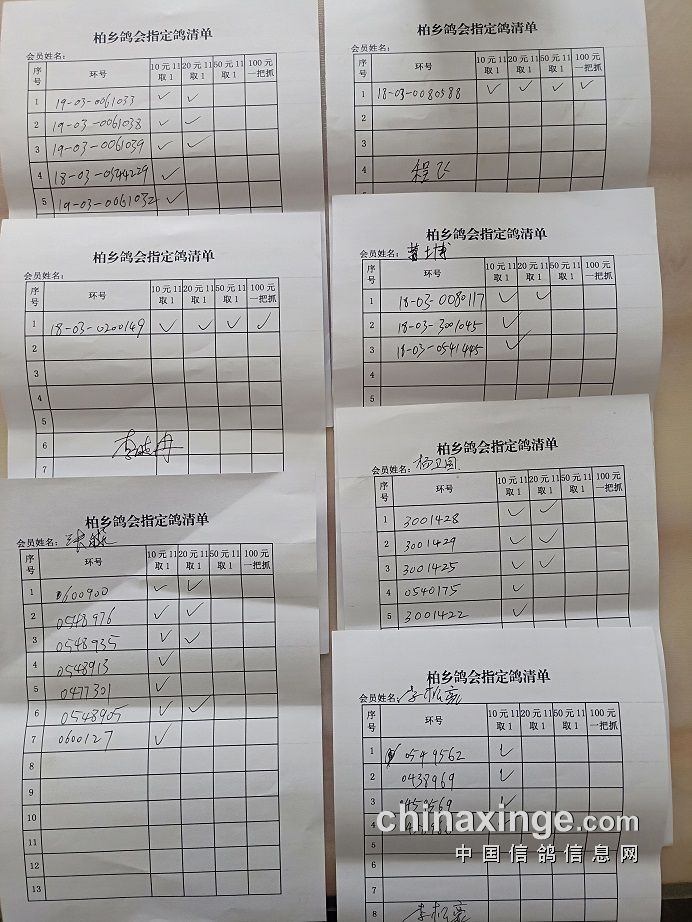 柏乡鸽会指定鸽清单
会员姓名：
序号 环号 10元11取1 20元11取1 50元11取1 100元一把抓
1 19-03-0061033 ✓ ✓
2 19-03-0061038 ✓ ✓
3 19-03-0061039 ✓ ✓
4 18-03-0544229 ✓
5 19-03-0061032 ✓
柏乡鸽会指定鸽清单
会员姓名：
序号 环号 10元11取1 20元11取1 50元11取1 100元一把抓
1 18-03-0080588 ✓ ✓ ✓ ✓
2
3
4 程飞
柏乡鸽会指定鸽清单
会员姓名：
序号 环号 10元11取1 20元11取1 50元11取1 100元一把抓
1 18-03-0200149 ✓ ✓ ✓ ✓
2
3
4
5
6
7
柏乡鸽会指定鸽清单
会员姓名：
序号 环号 10元11取1 20元11取1 50元11取1 100元一把抓
1 18-03-0080117 ✓ ✓
2 18-03-3001045 ✓
3 18-03-0541445 ✓
4
柏乡鸽会指定鸽清单
会员姓名：杨卫国
序号 环号 10元11取1 20元11取1 50元11取1 100元一把抓
1 3001428 ✓ ✓
2 3001429 ✓ ✓
3 3001425 ✓ ✓
4 0540175 ✓
5 3001422 ✓
柏乡鸽会指定鸽清单
会员姓名：
序号 环号 10元11取1 20元11取1 50元11取1 100元一把抓
1 0600900 ✓ ✓
2 0548976 ✓ ✓
3 0548935 ✓ ✓
4 0548913 ✓
5 0477301 ✓
6 0548905 ✓ ✓
7 0600127 ✓
8
9
10
11
12
13
柏乡鸽会指定鸽清单
会员姓名：李松亮
序号 环号 10元11取1 20元11取1 50元11取1 100元一把抓
1 0549562 ✓
2 0438969 ✓
3 0450569 ✓
4
5
6
7
8 李松亮
chinaxinge.com
中国信鸽信息网